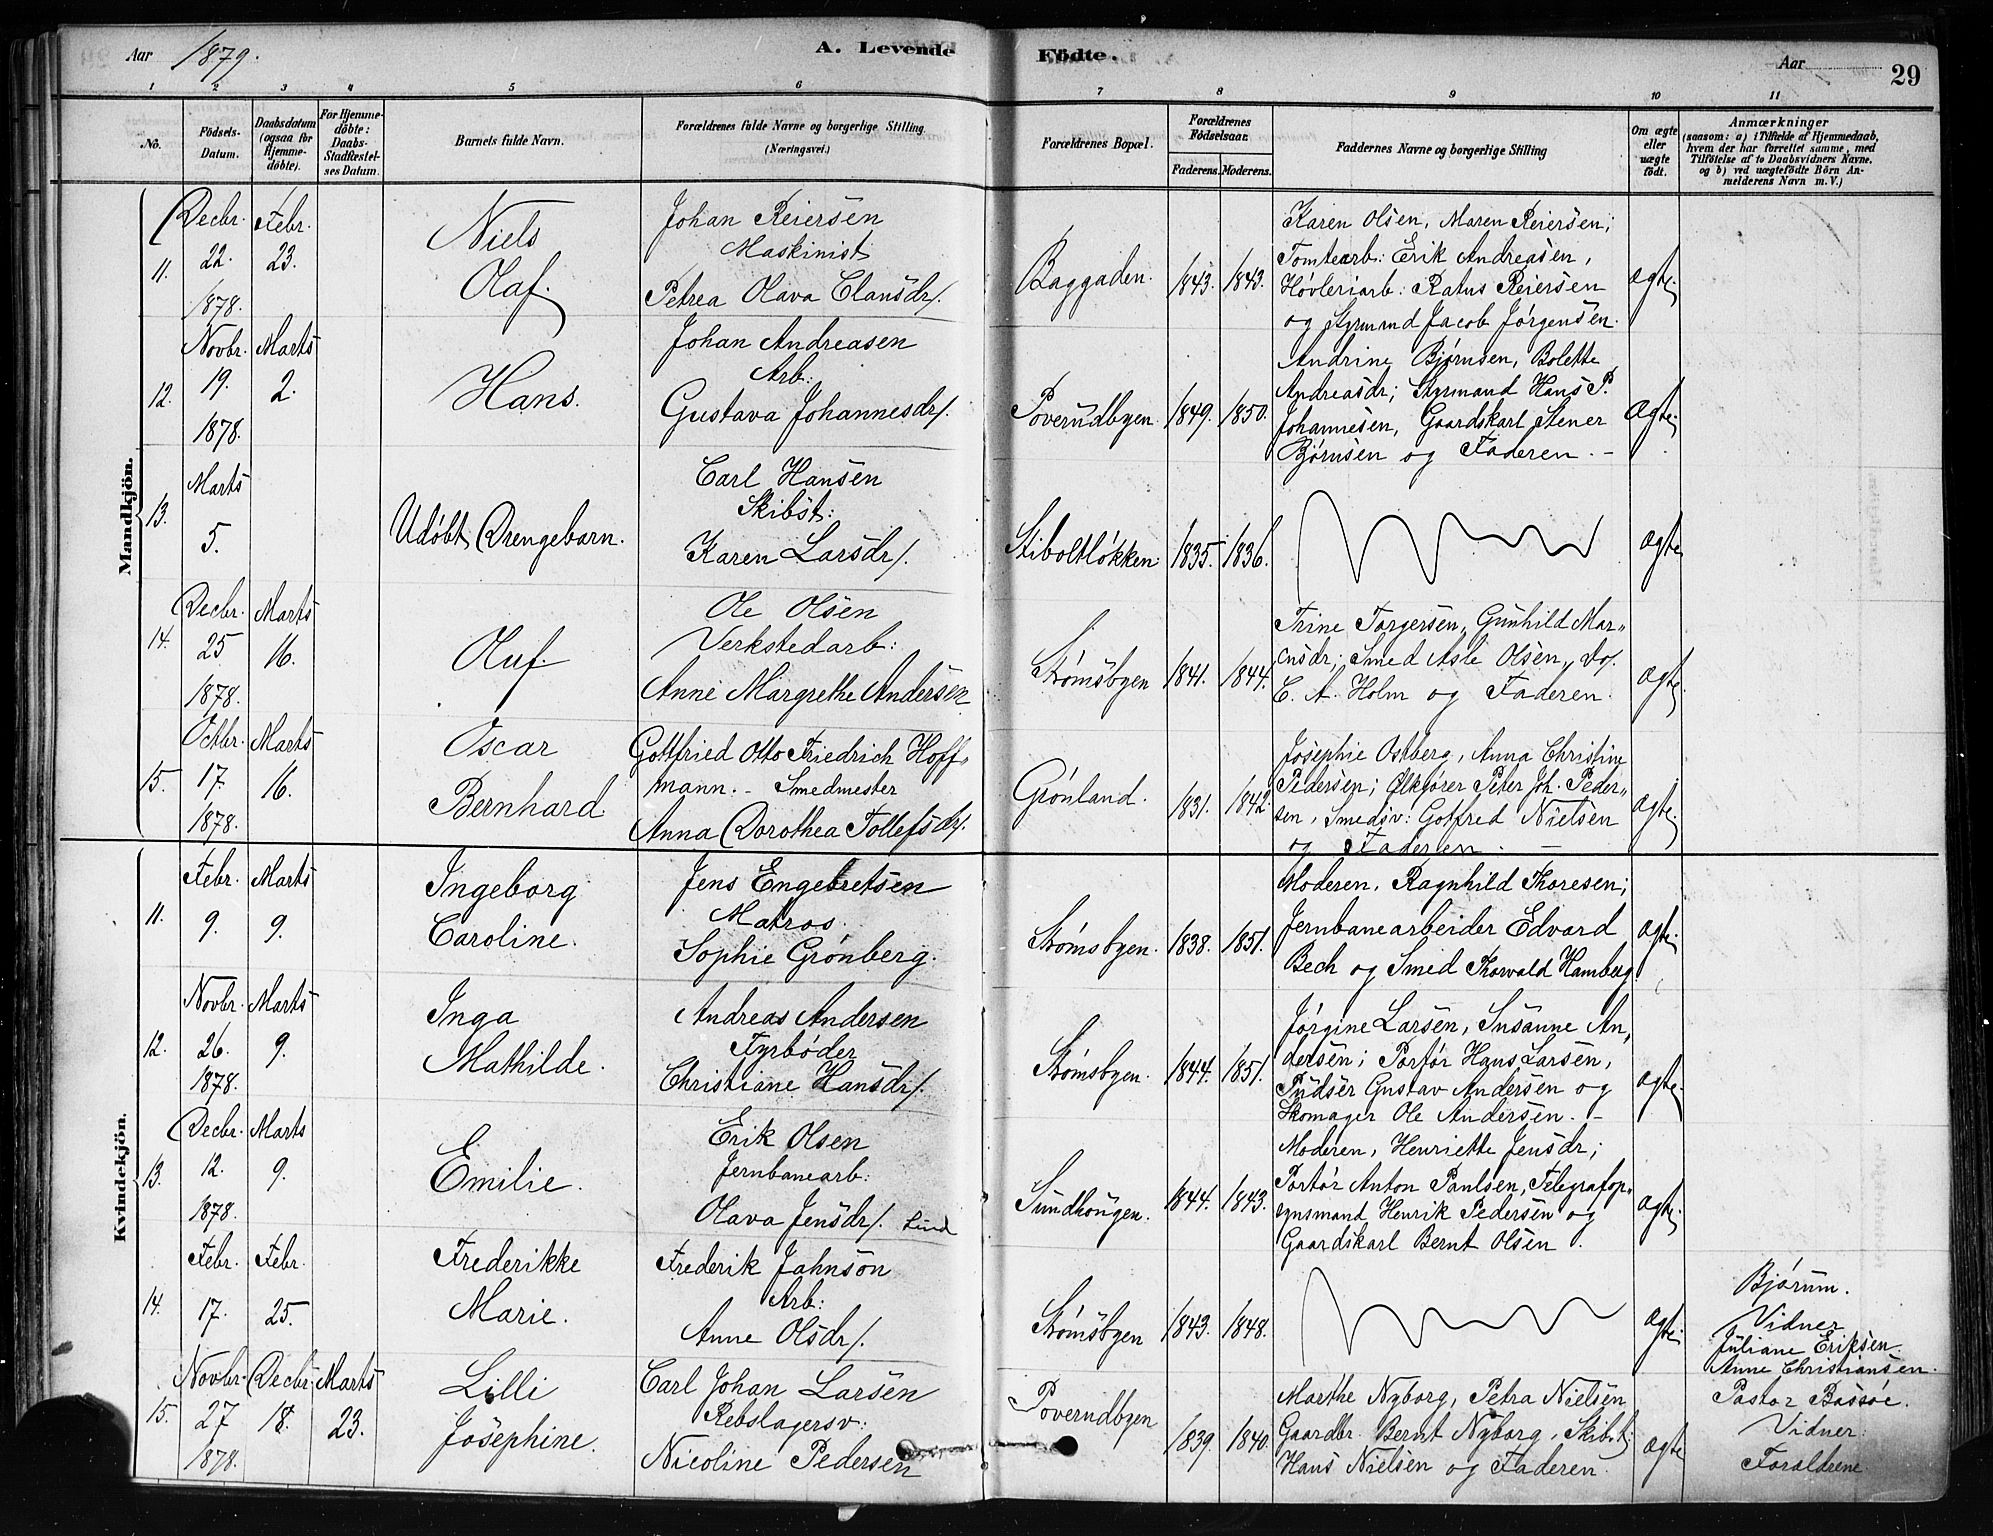 Aar 1879.
A. Levende Födte.
Aar
29
1 2 3 4 5 6 7 8 9 10 11
No.
Födsels-Datum.
Daabsdatum (ogsaa for Hjemme-döbte).
For Hjemme-döbte: Daabs-Stadfæstel-ses Datum.
Barnets fulde Navn.
Forældrenes fulde Navne og borgerlige Stilling (Næringsvei.)
Forældrenes Bopæl.
Forældrenes Födselsaar.
Faderens. Moderens.
Faddernes Navne og borgerlige Stilling
Om ægte eller uægte födt.
Anmærkninger
(saasom: a) i Tilfælde af Hjemmedaab, hvem der har forrettet samme, med Tilföielse af to Daabsvidners Navne, og b) ved uægtefödte Börn An-melderens Navn m. V.)
Mandkjön.
11.
Decbr. 22. 1878.
Febr. 23.
Niels
Olaf.
Johan Reiersen
Maskinist
Petrea Olava Clausdr/.
Baggaden.
1843. 1843.
Karen Olsen, Maren Reiersen;
Tomtearb: Erik Andreasen,
Høvleriarb: Ratus Reiersen
og Styrmand Jacob Jørgensen.
ægte.
12.
Novbr. 19. 1878.
Marts 2.
Hans.
Johan Andreasen
Arb:
Gustava Johannesdr/.
Poverudbyen.
1849. 1850.
Andrine Bjørnsen, Bolette
Andreasdr; Styrmand Hans P.
Johannesen, Gaardskarl Stener
Bjørnsen og Faderen. –
Ægte.
13.
Marts 5.
Udøbt Drengebarn.
Carl Hansen
Skibst:
Karen Larsdr/.
Stiboltløkken
1835. 1836.
ægte
14.
Decbr. 25 1878.
Marts 16.
Oluf.
Ole Olsen
Verkstedarb:
Anne Margrethe Andersen
Strømsbyen
1841. 1844.
Trine Torgersen, Gunhild Mar-
cusdr; Smed Asle Olsen, do/.
C. A. Holm og Faderen.
ægte.
15.
Octbr. 17. 1878.
Marts 16.
Oscar
Bernhard
Gottfried Otto Friedrich Hoff-
mann. - Smedmester
Anna Dorothea Tollefsdr/.
Grønland.
1831. 1842.
Josephie Ostberg, Anna Christine
Pedersen; Ølkjører Peter Joh. Peder-
sen, Smedsv: Gotfred Nielsen
og Faderen. –
ægte.
Kvindekjön.
11.
Febr. 9.
Marts 9.
Ingeborg
Caroline.
Jens Engebretsen
Matros.
Sophie Grønberg.
Strømsbyen.
1838. 1851.
Moderen, Ragnhild Thoresen;
Jernbanearbeider Edvard
Bech og Smed Thorvald Hamberg.
ægte.
12.
Novbr. 26. 1878.
Marts 9.
Inga
Mathilde.
Andreas Andersen
Fyrbøder
Christiane Hansdr/.
Strømsbyen.
1844. 1851.
Jørgine Larsen, Susanne An-
dersen; Portør Hans Larsen,
Pudser Gustav Andersen og
Skomager Ole Andersen. –
ægte.
13.
Decbr. 12. 1878.
Marts 9.
Emilie.
Erik Olsen
Jernbanearb:
Olava Jensdr/. Lund
Sundhougen.
1844. 1843.
Moderen, Henriette Jensdr;
Portør Anton Paulsen, Telegrafop-
synsmand Henrik Pedersen og
Gaardskarl Bernt Olsen.
ægte.
14.
Febr. 17.
Febr. 25.
Frederikke
Marie.
Frederik Johnson
Arb:
Anne Olsdr/.
Strømsbyen
1843. 1848.
ægte.
Bjørum.
Vidner
Juliane Eriksen.
Anne Christiansen.
15.
Novbr. 27 1878.
Decbr. 18.
Marts 23.
Lilli
Josephine.
Carl Johan Larsen
Rebslagersv:
Nicoline Pedersen
Poverudbyen
1839. 1840.
Marthe Nyborg, Petra Nielsen
Gaardbr. Bernt Nyborg, Skibst:
Hans Nielsen og Faderen.
ægte
Pastor Bassøe.
Vidner:
Forældrene